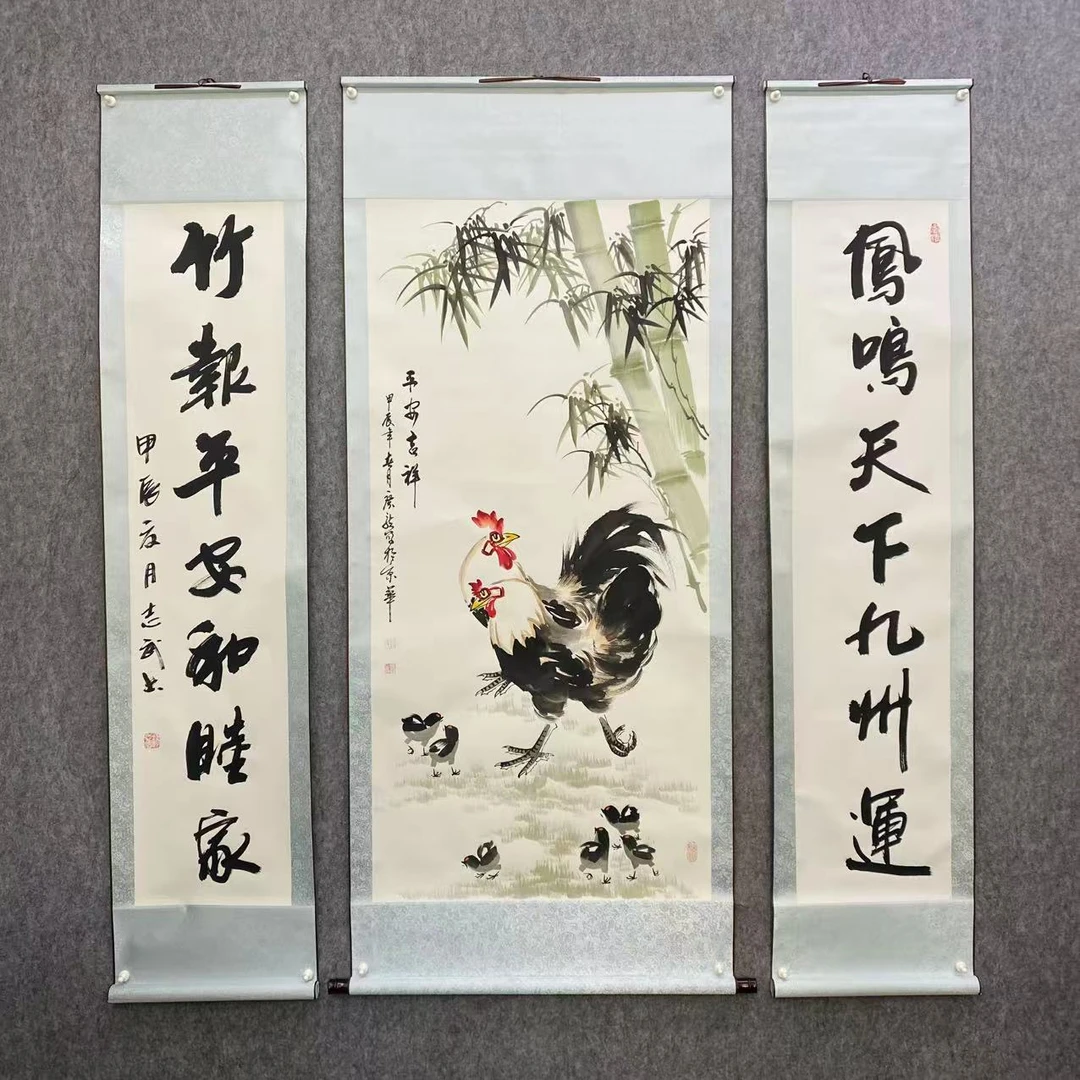 鳳鳴天下九州運
平安吉祥
甲辰年春月广啟写於京華
竹報平安和睦家
甲辰之月志武书